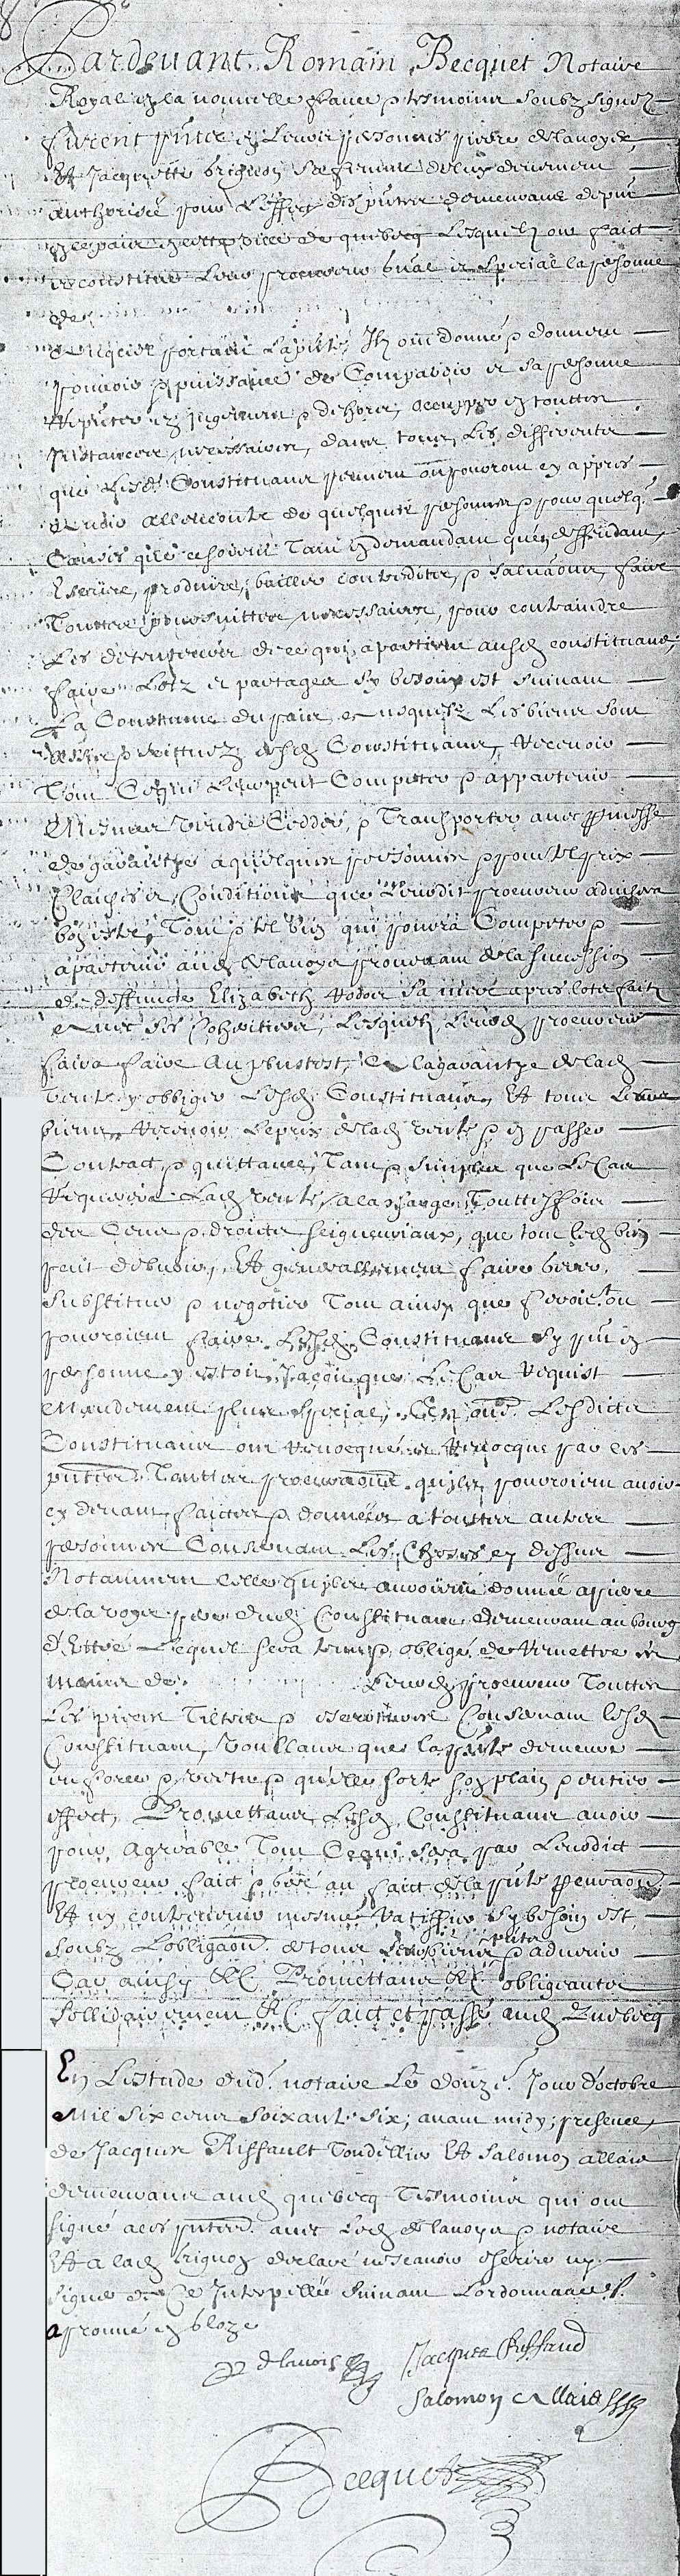 Pardevant Romain Becquet Notaire
Royal en la nouvelle france & tesmoins soubz signez
furent presens en Leurs personnes pierre delavoye
Et Jacquette Grignon sa femme deluy deuement
authorisée pour L'effect des putes demeurans depnt
en ce païs en cette ville de quebecq Lesquels ont faict
et constitué Leur procureur gnal et special la personne
de
Auquel portant Lapnte, Ilz ont donné & donnent
pouvoir & puissance de Comparoir et sa personne
Repnter en jugement & dehors, occupper en touttes
Instances necessaires, dans tous Les differents
que Lesd Constituans peuvent ou pouront cy apres
avoir allencontre de quelques personnes & pour quelq
Causes que ce soient Tant en demandant quen deffendant,
Escrire, produire, bailler contredits, & salvaons, faire
Touttes poursuittes necessaires, pour contraindre
Les detempteurs de ce qui apartient ausd constituans,
faire Lotz et partages sy besoin est suivant
La Coustume du païs, esquels Lesbiens sont
assis & scittuez desd Constituans, Recevoir
Tout Ce qui Leur peut Competer & appartenir
Mesmes vendre Cedder, & Transporter avec promesse
de garantye a quelques personnes & pour tel prix
Clauses et Conditions que Leurdit procureur advisera
bon estre, Tout & tel bien qui poura Competer &
apartenir aud delavoye provenant dela succession
de deffuncte Elizabeth Rodoir sa mere apres lots faits
avec ses Cohritiers, Lesquels Leurd procureur
fera faire Au plustost, Et a Lagarantye delad
vente y obliger Lesd Constituans, Et tous Leurs
biens, Recevoir Leprix delad vente & en passer
Contract & quittance, Tant & simples que Le Cas
Requerera Lad vente, a la charge Touttesfois
des Cens & droits seigneuriaux, que tout led bien
peut debvoir, Et generallement faire gerer,
substituer & negotier Tout ainsy que feroient ou
pouroient faire Lesd Constituans sy pns en
personne y estoient Jaçoit que Le Cas Requist
mandement plus special, Lesdicts
Constituans ont revocqué et Revocque par ces
putes Touttes procuraons quilz pouroient avoir
cy devant faictes & données a touttes autres
personnes Concernant Les Choses cy dessus
Notamment Celle quilz auroient donnée a pierre
delavoye pere dud Constituant demeurant au bourg
d'Ettré Lequel sera tenu & obligé de Remettre es
mains de Leurd procureur Touttes
Les pieces Tiltres & escritures Concernant lesd
Constituans, voullans que lapnte demeure
en force & vertu & quelle sorte son plain & entier
effect, Promettans Lesd Constituans avoir
pour Agreable Tout Ce qui sera par Leurdict
procureur faict & geré au faict dela pnte procuraon
Et ny contrevenir mesme Ratiffier sy besoin est,
soubz Lobligaon de tous Leurs biens pntz & advenir
Car ainsy &C Promettans &C obligeants
sollidairement &C faict et passé aud Quebecq
En Lestude dud notaire Le douze Jour d'octobre
Mil six cens soixante six; avant midy; presence
de Jacques Riffault Tondellier Et Salomon allaire
demeurans aud quebecq Tesmoins qui ont
signé aces pntes avec Led delavoye & notaire
Et a lad Grignon declaré ne sçavoir escrire ny
signer de Ce Interpellée suivant Lordonnance
aprouvé en bloze
delavoie Jacques Riffaud
Salomon Allaire
Becquet